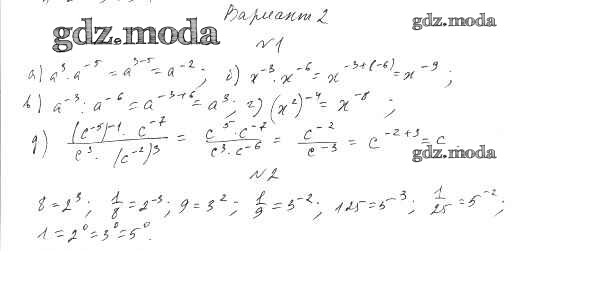 Вариант 2
gdz.moda
gdz.moda
№1
а) a³ · a⁻⁵ = a³⁻⁵ = a⁻² ; б) x⁻³ · x⁻⁶ = x⁻³⁺⁽⁻⁶⁾ = x⁻⁹ ;
в) a⁻³ : a⁻⁶ = a⁻³⁺⁶ = a³ ; г) (x²)⁻⁴ = x⁻⁸ ;
д) (c⁻⁵)⁻¹ · c⁻⁷ / c³ · (c⁻²)³ = c⁵ · c⁻⁷ / c³ · c⁻⁶ = c⁻² / c⁻³ = c⁻²⁺³ = c
gdz.moda
№2
8 = 2³ ; 1/8 = 2⁻³ ; 9 = 3² ; 1/9 = 3⁻² ; 125 = 5⁻³ ; 1/25 = 5⁻² ;
1 = 2⁰ = 3⁰ = 5⁰.